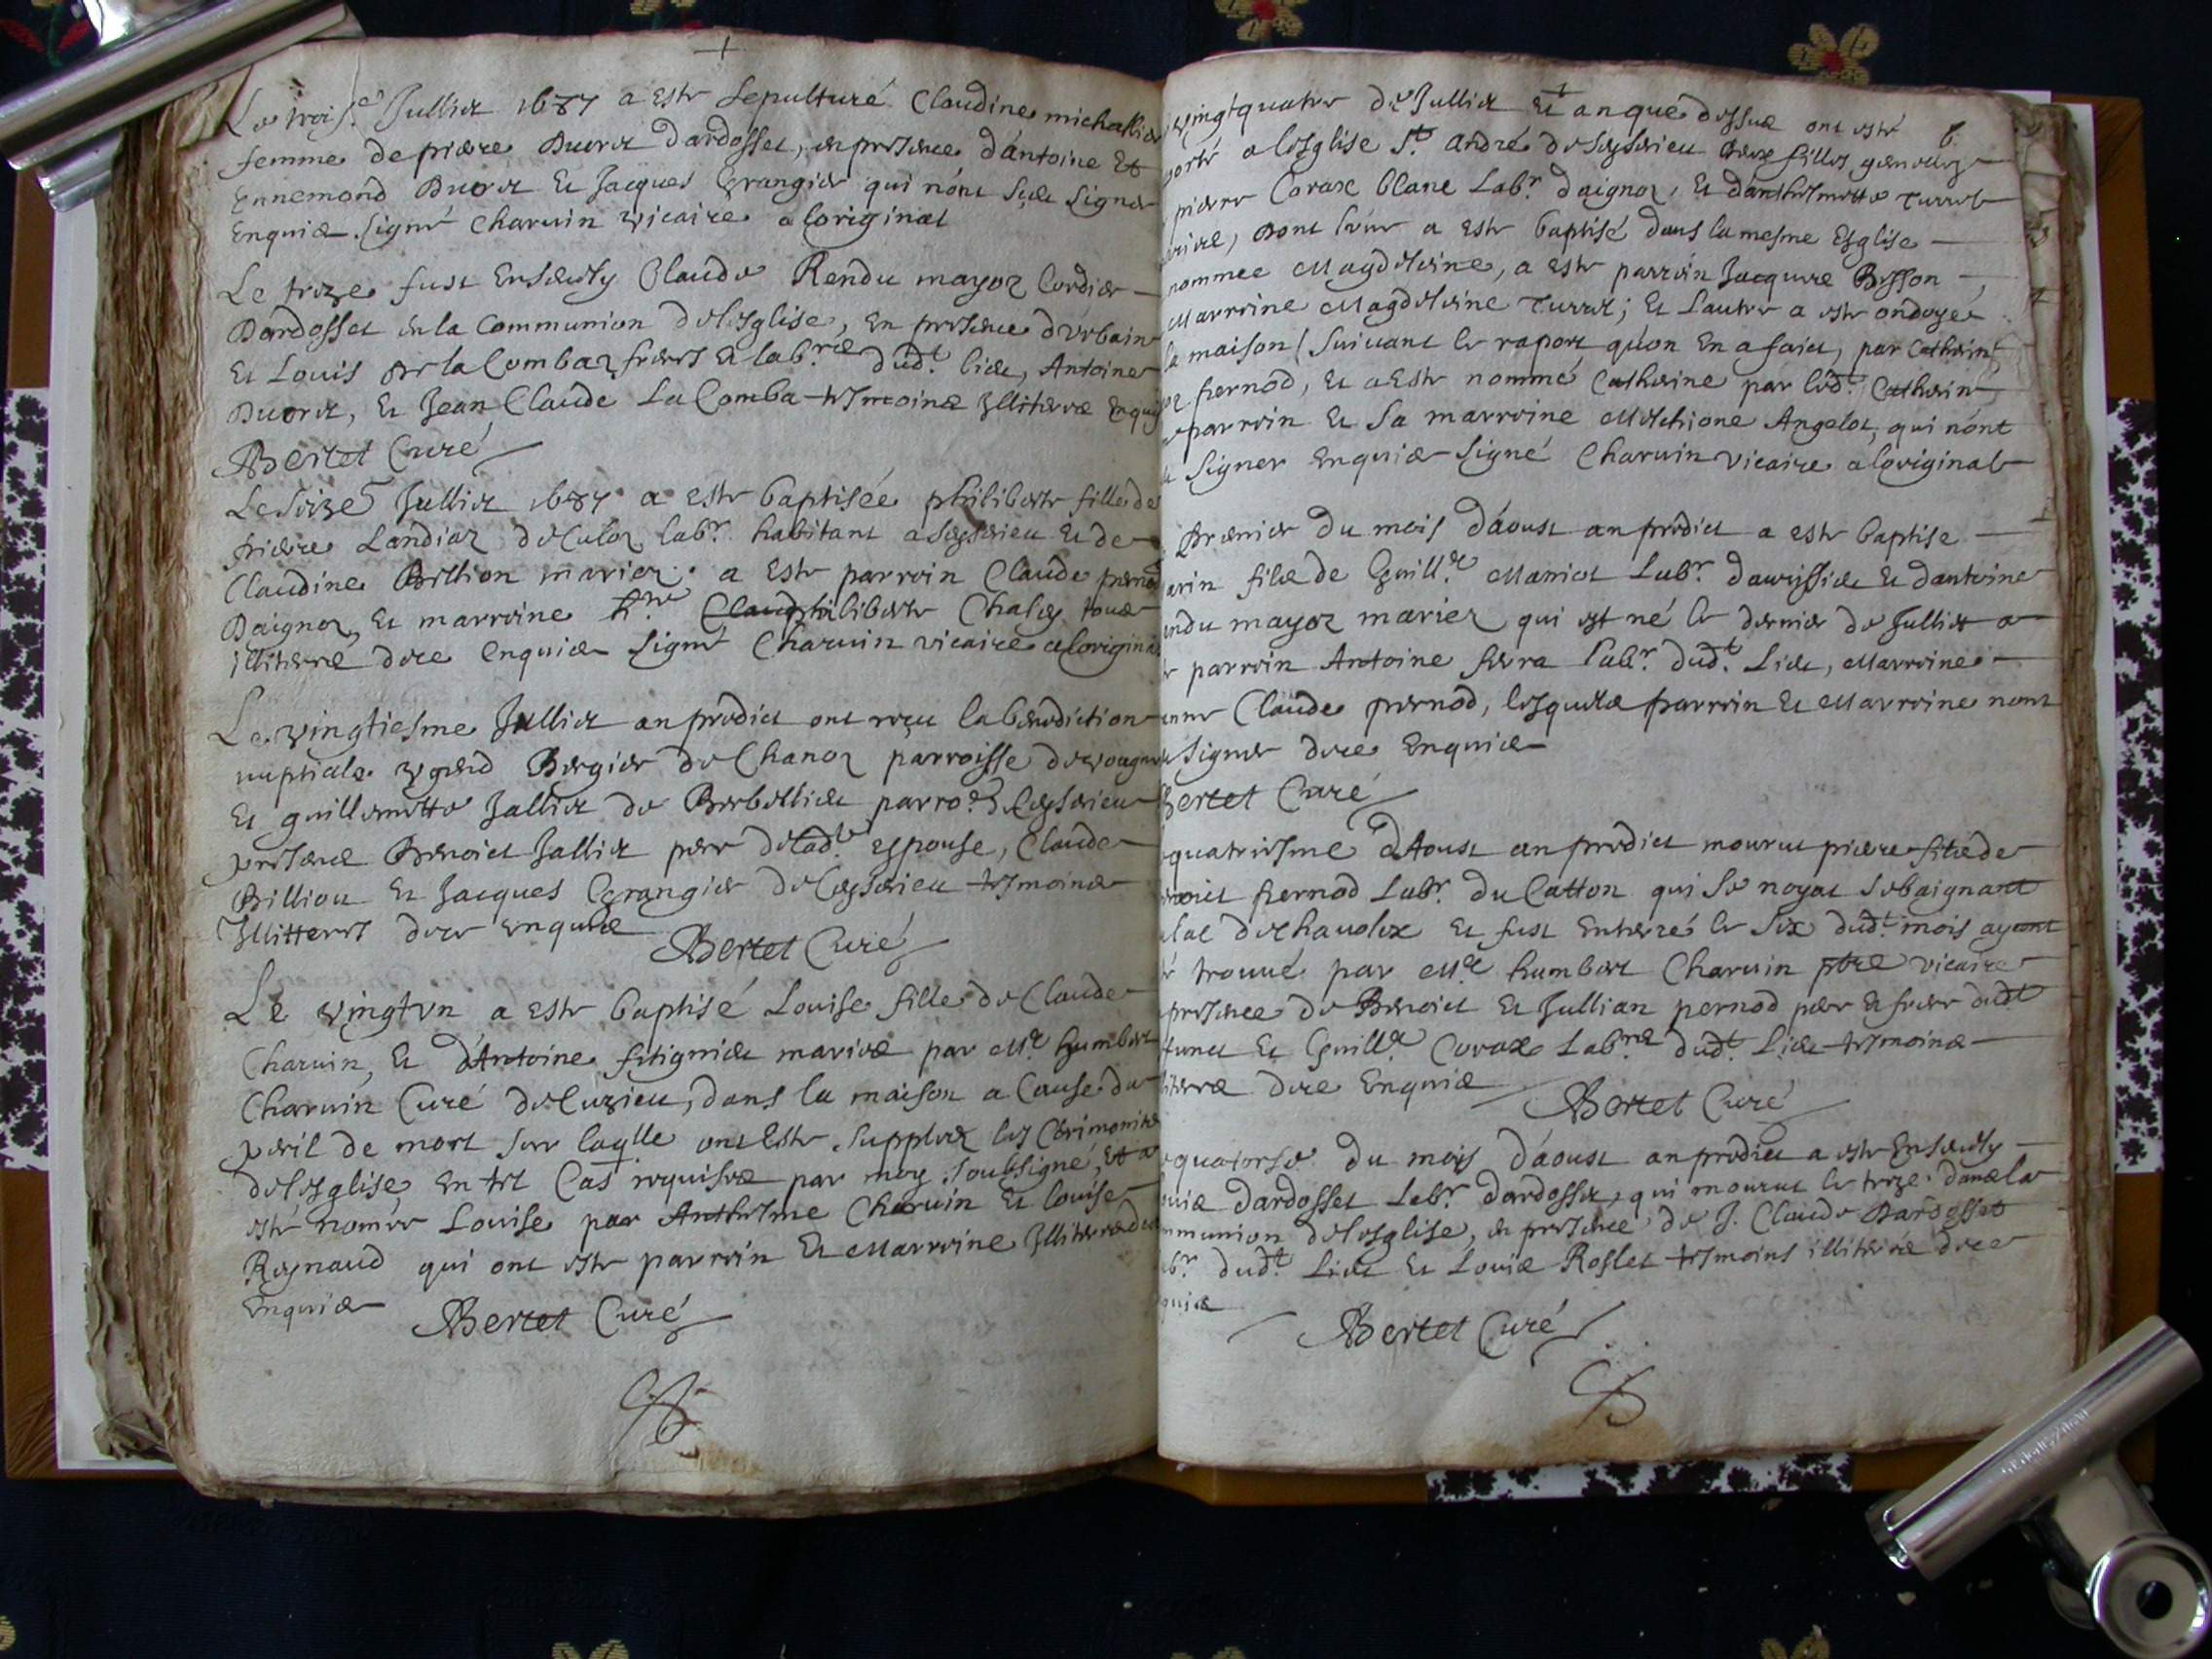 Le trois.e Jullier 1687 a este sepulturé Claudine michallier
femme de piere Buoret dardosset, en presence dántoine Et
Ennemond Buoret Et Jacques Grangier qui nónt sceu signer
Enquis signé Charuin vicaire a loriginal
Le treze fust Enseuely Claude Rendu mayoz Cordier
Dardosset én la Communion de lesglise, En presence dúrbain
Et Louis de la Combaz freres Et lab.rs dud.t lieu, Antoine
Buoret, Et Jean Claude La Comba tesmoins Illiteres Enquis
Bertet Curé
Le seize Jullier 1687 a este baptisée philiberte fille de
piere Landiaz de Culoz lab.r habitant a Ceyserieu Et de
Claudine Billion mariez. a Este parroin Claude pernod
Daignoz, Et marroine Claud philiberte Chaley tous
illiterés de ce enquis signé Charuin vicaire a loriginal
Le vingtiesme Jullier an predict ont reçu la benediction
nuptiale Bergier de Chanoz parroisse de vougne
Et guillemette Jallier de Berbellieu parro.e de Ceyserieu
presence Benoict Jallier pere de lad.te espouse, Claude
Billion Et Jacques Grangier de Ceyserieu tesmoins
Illitteres de ce enquis Bertet Curé
Le vingtvn a este baptisé Louise fille de Claude
Charuin, Et dÁntoine fitignieu maries par M.e humbert
Charuin Curé de Cuzieu, dans la maison a Cause du
peril de mort sur laqlle ont Este supplees les Cerimonies
de lesglise, En tel Cas requises par moy soubsigné, Et a
esté nomée Louise par Anthelme Charuin Et louise
Reynaud qui ont este parroin Et Marroine Illiteres de ce
Enquis Bertet Curé
vingtquatre de Jullier Et an que dessus ont esté 6.
porté a lesglise S.t André de Ceyserieu deux filles gemelles
piere Corax blanc Lab.r daignoz, Et dánthelmette Turrel
maries, dont lúne a este baptisé dans la mesme Esglise
nommee Magdeleine, a este parroin Jacques Bisson
Marroine Magdeleine Turrel; Et Lautre a este ondoyé
la maison (suiuant le raport qu'on En a faict, par Catherin
pernod, Et a Este nommé Catherine par led.t Catherin
parroin Et sa marroine Melchione Angelot, qui nónt
signer Enquis signé Charuin vicaire a loriginal
Premier du mois dáoust an predict a este baptise
arin fils de Guill.e Manict Lab.r Et dantoine
endu mayoz mariez qui est né le dernier de Jullier a
parroin Antoine serra lab.r dud.t Lieu, Marroine
Claude pernod, lesquels parroin Et Marroine nont
signer de ce Enquis
Bertet Curé
quatriesme dAoust an predict mourut piere fils de
Benoict pernod Lab.r du Catton qui se noyat se baignant
lac de chauolex Et fust Enterré le six dud.t mois ayant
trouué par M.e humbert Charuin ptre vicaire
presence de Benoict Et Jullian pernod pere Et frere dud.t
funct Et Guill.e Corax Lab.rs dud.t Lieu tesmoins
literes de ce Enquis
Bertet Curé
quatorse du mois dáoust an predict a este Enseuely
ouis Dardosset Lab.r dardosset, qui mourut le treze dans la
mmunion de lesglise, en presence de J. Claude Dardosset
ab.r dud.t Lieu Et Louis Roslet tesmoins illiteres de ce
quis
Bertet Curé